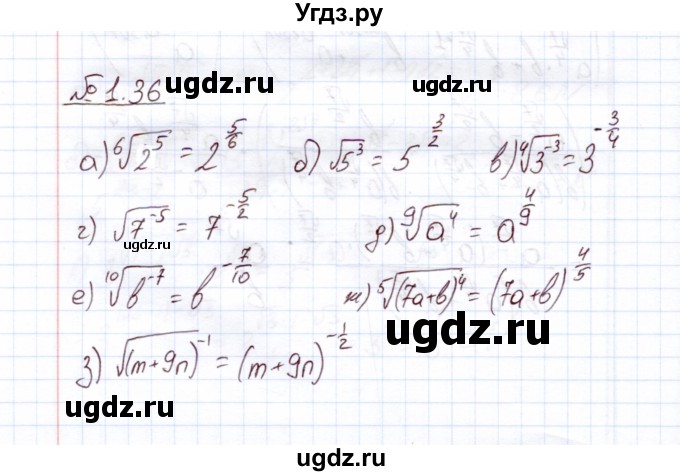 Угдз.ру
№ 1.36
ugdz.ru
ugdz.ru
а) ⁶√(2⁵) = 2^(5/6) б) √(5³) = 5^(3/2) в) ⁴√(3⁻³) = 3^(-3/4)
г) √(7⁻⁵) = 7^(-5/2) д) ⁹√(a⁴) = a^(4/9)
ugdz.ru
ugdz.ru
е) ¹⁰√(b⁻⁷) = b^(-7/10) ж) ⁵√((7a+b)⁴) = (7a+b)^(4/5)
ugdz.ru
з) √((m+9n)⁻¹) = (m+9n)^(-1/2)
ugdz.ru
ugdz.ru